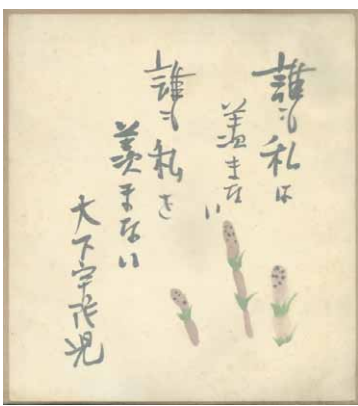 誰も私は
羨まない
誰も私を
羨まない
大下宇陀児